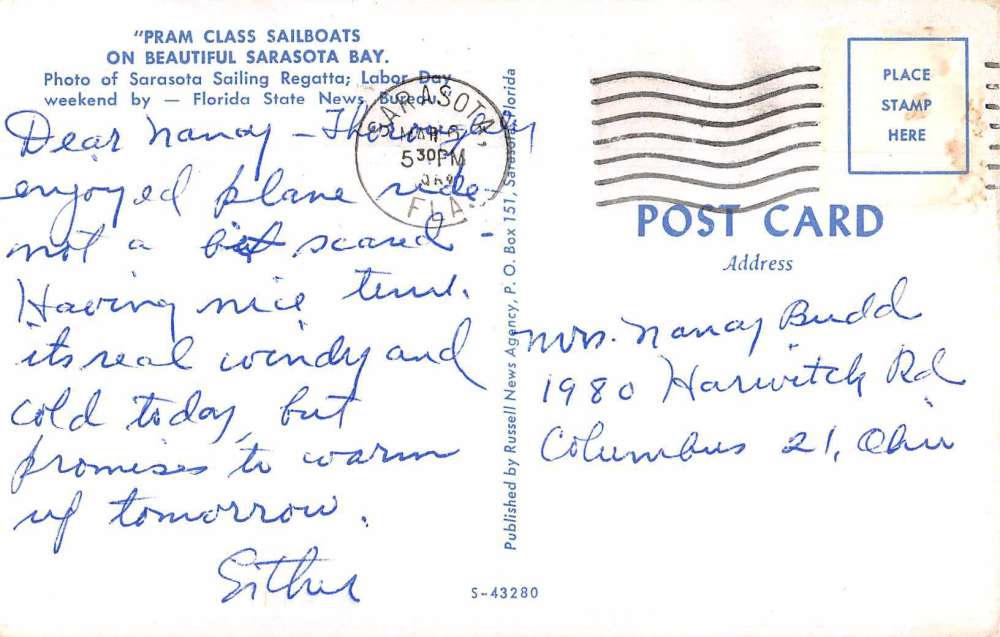 "PRAM CLASS SAILBOATS
ON BEAUTIFUL SARASOTA BAY.
Photo of Sarasota Sailing Regatta; Labor Day
weekend by — Florida State News Bureau."
Dear Nancy - Thoroughly
enjoyed plane ride -
not a bit scared -
Having nice time.
its real windy and
cold today, but
promises to warm
up tomorrow.
Esther
SARASOTA,
MAR
5 30 PM
FLA.
Published by Russell News Agency, P. O. Box 151, Sarasota, Florida
S-43280
PLACE
STAMP
HERE
POST CARD
Address
Mrs. Nancy Budd
1980 Harwitch Rd
Columbus 21, Ohio